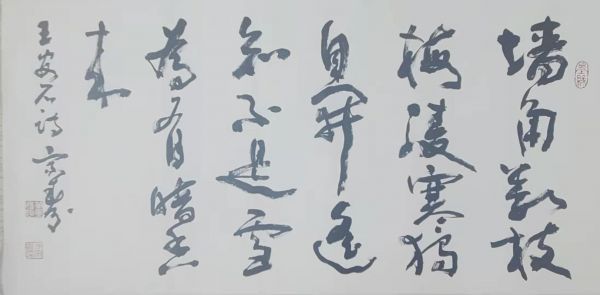 墙角数枝
梅凌寒独
自开遥
知不是雪
為有暗香
来
王安石诗